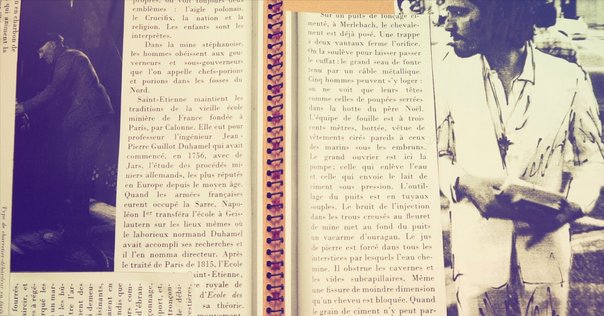 phonie, on voit toujours deux
emblèmes : l'aigle polonais,
le Crucifix, la nation et la
religion. Les enfants sont les
interprètes.
Dans la mine stéphanoise,
les hommes obéissent aux gou-
verneurs et sous-gouverneurs
que l'on appelle chefs-porions
et porions dans les fosses du
Nord.
Saint-Etienne maintient les
traditions de la vieille école
minière de France fondée à
Paris, par Calonne. Elle eut pour
professeur l'ingénieur Jean-
Pierre Guillot Duhamel qui avait
commencé, en 1756, avec de
Jars, l'étude des procédés mi-
niers allemands, les plus réputés
en Europe depuis le moyen âge.
Quand les armées françaises
eurent occupé la Sarre, Napo-
léon Ier transféra l'école à Geis-
lautern sur les lieux mêmes où
le laborieux normand Duhamel
avait accompli ses recherches et
il l'en nomma directeur. Après
le traité de Paris de 1815, l'Ecole
Saint-Etienne,
royale de
d'Ecole des
sa théorie.
Sur un puits de fonçage ci-
menté, à Merlebach, le chevale-
ment est déjà posé. Une trappe
à deux vantaux ferme l'orifice.
On la soulève pour laisser passer
le cuffat : le grand seau de fonte
tenu par un câble métallique.
Cinq hommes peuvent s'y loger :
on ne voit que leurs têtes
comme celles de poupées serrées
dans la hotte du père Noël.
L'équipe de fouille est à trois
cents mètres, bottée, vêtue de
vêtements cirés pareils à ceux
des marins sous les embruns.
Le grand ouvrier est ici la
pompe; celle qui enlève l'eau
et celle qui envoie le lait de
ciment sous pression. L'outil-
lage du puits est en tuyaux
souples. Le bruit de l'injection
dans les trous creusés au fleuret
de mine met au fond du puits
un vacarme d'ouragan. Le jus
de pierre est forcé dans tous les
interstices par lesquels l'eau che-
mine. Il obstrue les cavernes et
les vides subcapillaires. Même
une fissure de moindre dimension
qu'un cheveu est bloquée. Quand
le grain de ciment n'y peut par-